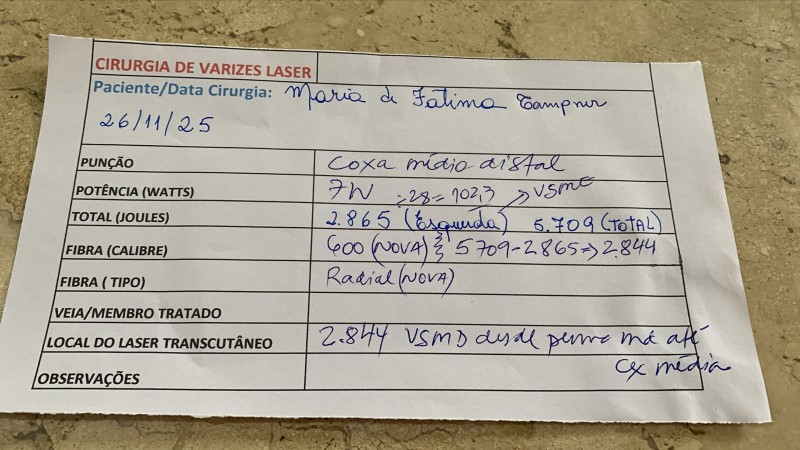 CIRURGIA DE VARIZES LASER
Paciente/Data Cirurgia: Maria de Fatima
26/11/25
PUNÇÃO coxa médio distal
POTÊNCIA (WATTS) 7W ÷28= 102,3 → VSME
TOTAL (JOULES) 2.865 (Esquerda) 5.709 (TOTAL)
FIBRA (CALIBRE) 600 (NOVA) 5709-2.865 => 2.844
FIBRA ( TIPO) Radial (NOVA)
VEIA/MEMBRO TRATADO
LOCAL DO LASER TRANSCUTÂNEO 2.844 VSMD desde até
OBSERVAÇÕES cx média